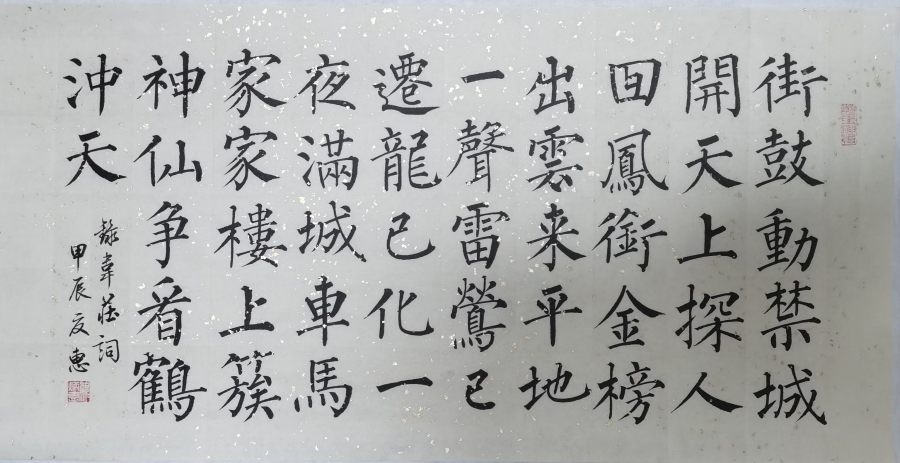 街鼓動禁城
開天上探人
回鳳銜金榜
出雲来平地
一聲雷鶯已
遷龍已化一
夜滿城車馬
家家樓上簇
神仙争看鶴
沖天
錄韋莊詞
甲辰友惠